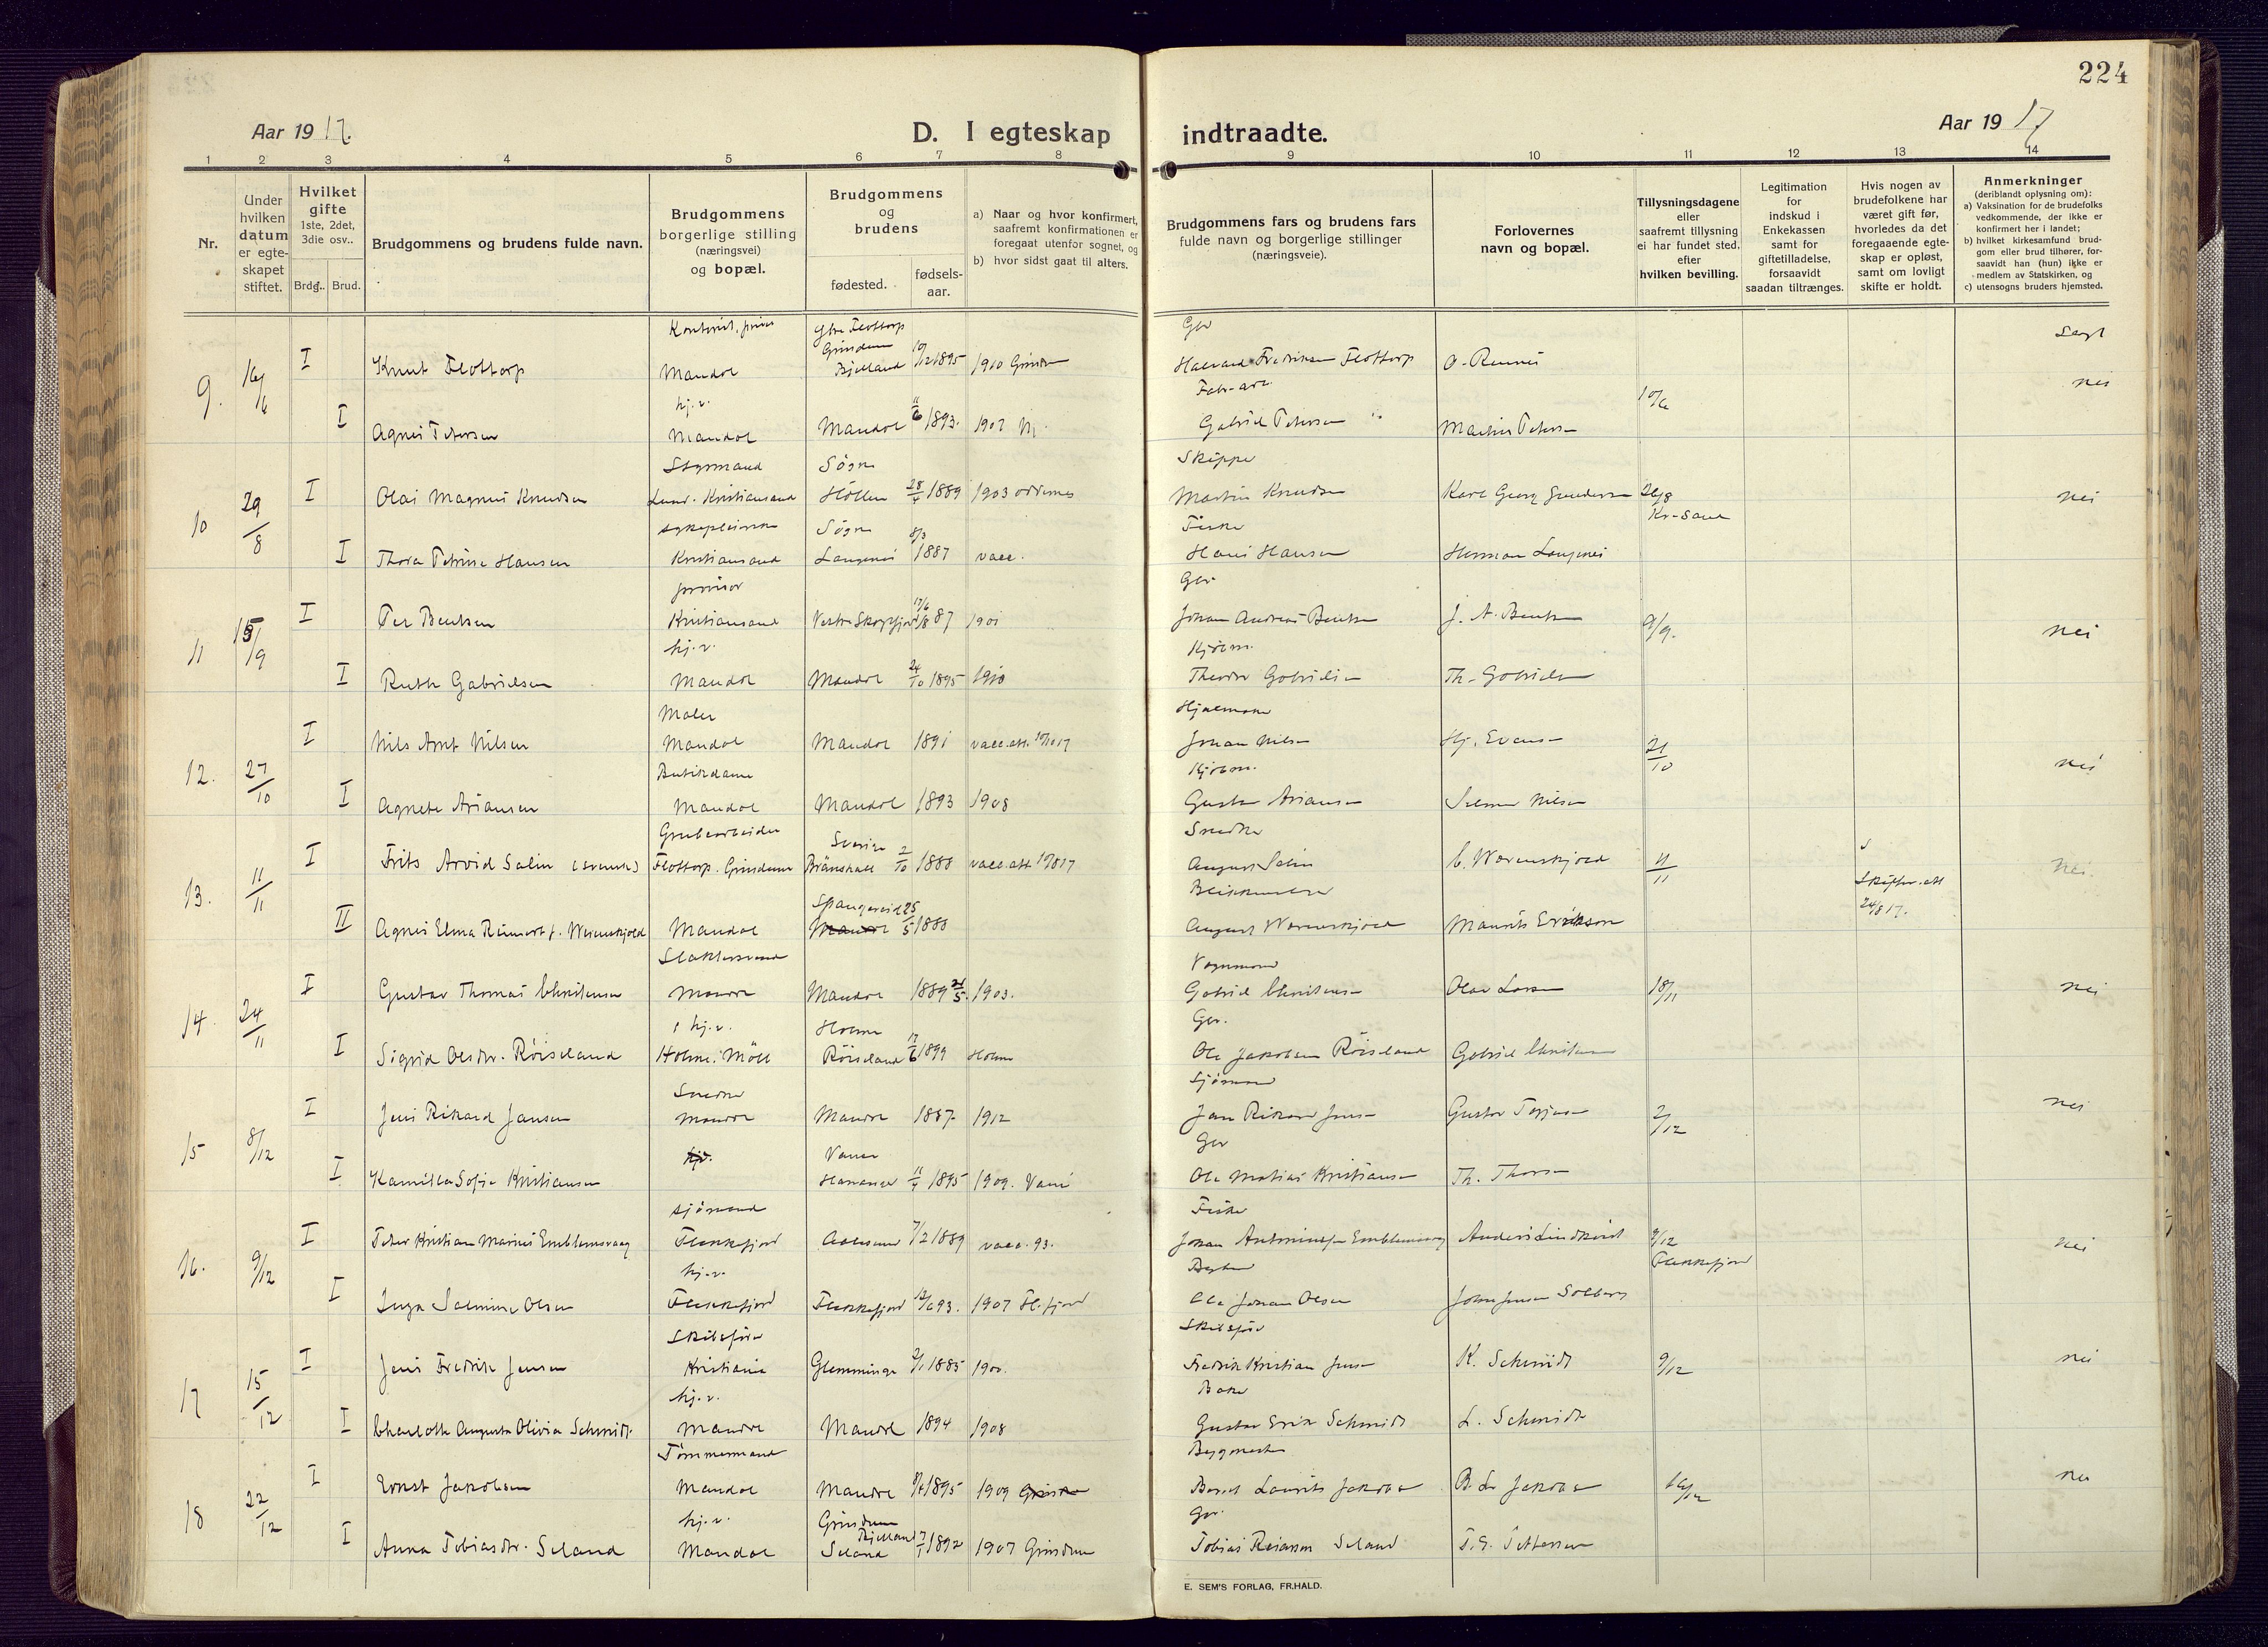 224
Aar 1917.
D. I egteskap indtraadte.
Aar 1917
1 2 3 4 5 6 7 8 9 10 11 12 13 14
Nr.
Under hvilken datum er egte-skapet stiftet.
Hvilket gifte
1ste, 2det, 3die osv..
Brdg.. Brud.
Brudgommens og brudens fulde navn.
Brudgommens borgerlige stilling (næringsvei) og bopæl.
Brudgommens og brudens
fødested. fødsels-aar.
a) Naar og hvor konfirmert, saafremt konfirmationen er foregaat utenfor sognet, og
b) hvor sidst gaat til alters.
Brudgommens fars og brudens fars fulde navn og borgerlige stillinger (næringsveie).
Forlovernes navn og bopæl.
Tillysningsdagene eller saafremt tillysning ei har fundet sted, efter hvilken bevilling.
Legitimation for indskud i Enkekassen samt for giftetilladelse, forsaavidt saadan tiltrænges.
Hvis nogen av brudefolkene har været gift før, hvorledes da det foregaaende egte-skap er opløst, samt om lovligt skifte er holdt.
Anmerkninger
(deriblandt oplysning om):
a) Vaksination for de brudefolks vedkommende, der ikke er konfirmert her i landet;
b) hvilket kirkesamfund brud-gom eller brud tilhører, for-saavidt han (hun) ikke er medlem av Statskirken, og
c) utensogns bruders hjemsted.
Ytre Flottorp
Gbr
Grindum 10/12 1895
9. 16/6 I Knut Flottorp Mandal Bjelland 1910 Grindum Halvard Fredriksen Flottorp
hj.v. nei
10/6
I Agnes Petersen Mandal Mandal 11/6 1893. 1907 M. Gabriel Petersen Martin Petersen
Styrmand Søgne Skipper
10 29/8 I Olai Magnus Knudsen Lund. Kristiansand Höllen 28/4 1889 1903 Oddernes Martin Knudsen Karl Georg Gundersen 26/8 Kr-sand nei
Søgne 8/3 Fisker
I Thora Petrine Hansen Kristiansand Langenes 1887 vacc. Hans Hansen Herman Langenes
Gbr
11 15/9 I Per Bentsen Kristiansand 1901 Johan Andreas Bentsen J. A. Bentsen 9/9. nei
hj.v. Kjøbm.
I Ruth Gabrielsen Mandal Mandal 24/10 1895 1910 Theodor Gabrielsen Th. Gabrielsen
Maler
12. 27/10 I Nils Arnt Nilsen Mandal Mandal 1891 vacc.att. 10/10 17 Johan Nilsen Hj. Evensen 21/10 nei
Butikdame Kjøbm.
I Agnete Ariansen Mandal Mandal 1893 1908 Gustav Ariansen Selmer Nilsen
Grubearbeider Sverige Snedker
13. 11/11 I Frits Arvid Salin (svensk) Flottorp. Grindum 2/10 1888 vacc.att. August Salin C. Wærenskjold 4/11 nei
Spangereid 25/5 Skifter.att 24/8 17.
II Agnes Elena Reinert f. Wærenskjold Mandal 1888 August Wærenskjold Maurits Erikson
Slaktersvend Vognmand
14. 24/11 I Gustav Thomas Christensen Mandal Mandal 1889 21/5. 1903. Gabriel Christensen Olav Larsen 18/11 nei
hj.v. Holme Gbr.
I Sigrid Olsdtr. Röiseland Holme. Möll Röiseland 17/6 1899 Holme Ole Jakobsen Röiseland Gabriel Christensen
Snedker Sjømand
15 8/12 I Jens Rikard Jansen Mandal Mandal 1887 1912 2/12 nei
Vanse Gbr
I Kamilla Sofie Kristiansen 11/4 1895 1909. Vanse Ole Matias Kristiansen Th. Thorsen
sjömand Fisker
16. 9/12 I Peter Kristian Marius Emblemsvaag Flekkefjord Aalesund 7/2 1889 vacc. 93. Anders Lindkvist 2/12 Flekkefjord nei
hj.v.
I Inga Selmine Olsen Flekkefjord Flekkefjord 12/6 93. 1907 Fl.fjord Ole Johan Olsen John Jensen Solberg
Skibsfører Skibsfør
17 15/12 I Jens Fredrik Jensen Kristiania Glemminge 2/1 1885 1900. Fredrik Kristian Jensen K. Schmidt 9/12 nei
hj.v. Baker
I Charlotte Augusta Olivia Schmidt Mandal Mandal 1894 1908 Gustav Erik Schmidt L. Schmidt
Tömmermand Bygmester
18 22/12 I Ernst Jakobsen Mandal Mandal 1895 1909 Bernt Laurits Jakobsen B. L. Jakobsen 16/12 nei
hj.v. Grindum Gbr.
Bjelland
I Anna Tobiasdtr. Seland Mandal Seland 1892 1907 Grindum Tobias Reiersen Seland T. G. Pettersen
E. SEM'S FORLAG, FR.HALD.